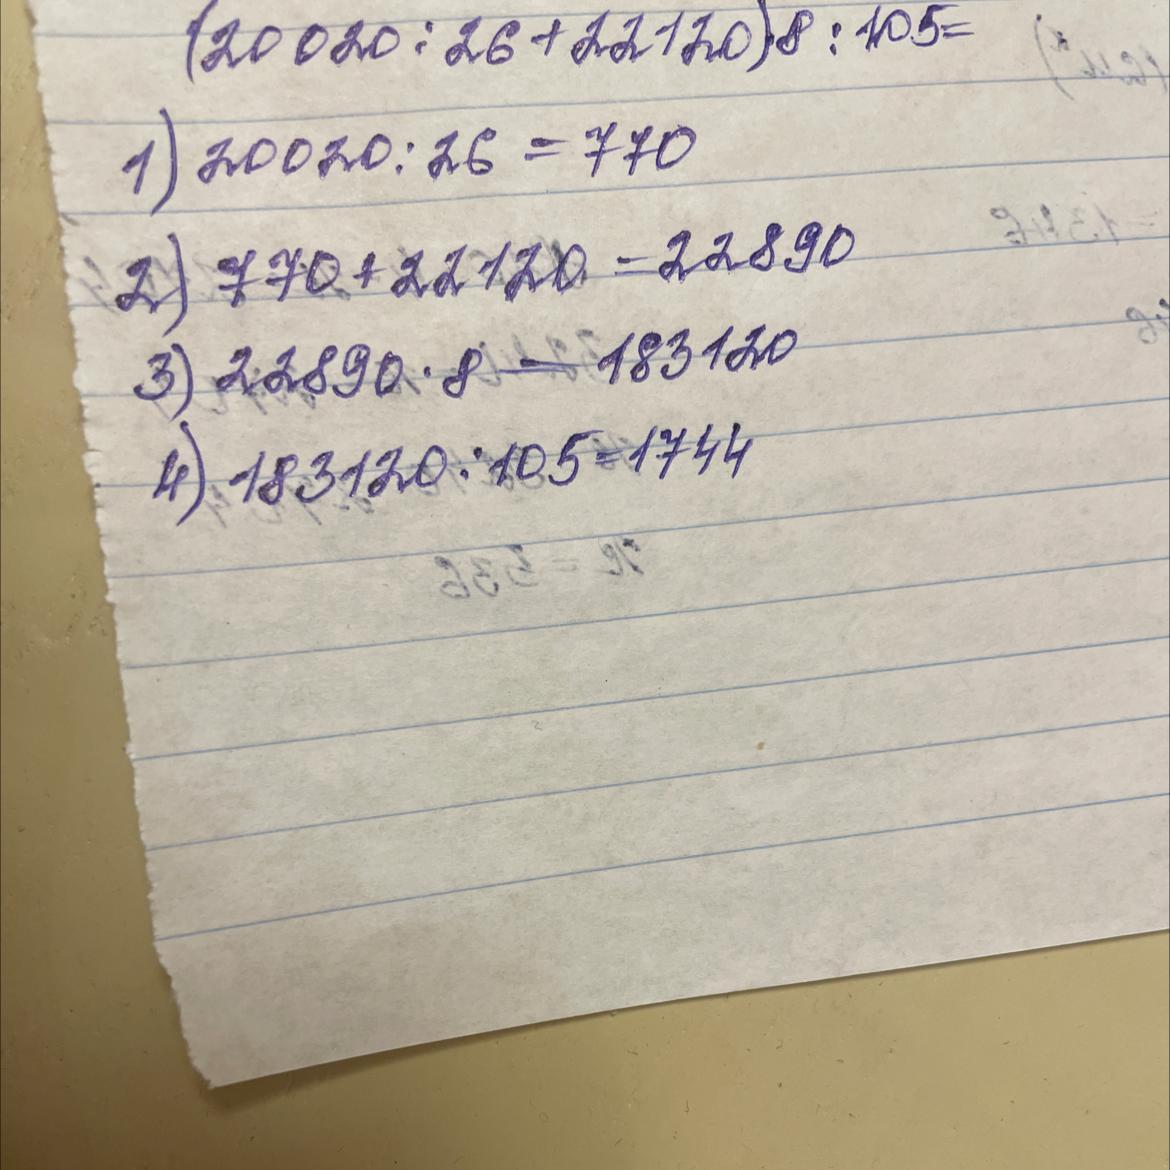 (20020:26+22120)·8:105=
1) 20020:26=770
2) 770+22120=22890
3) 22890·8=183120
4) 183120:105=1744